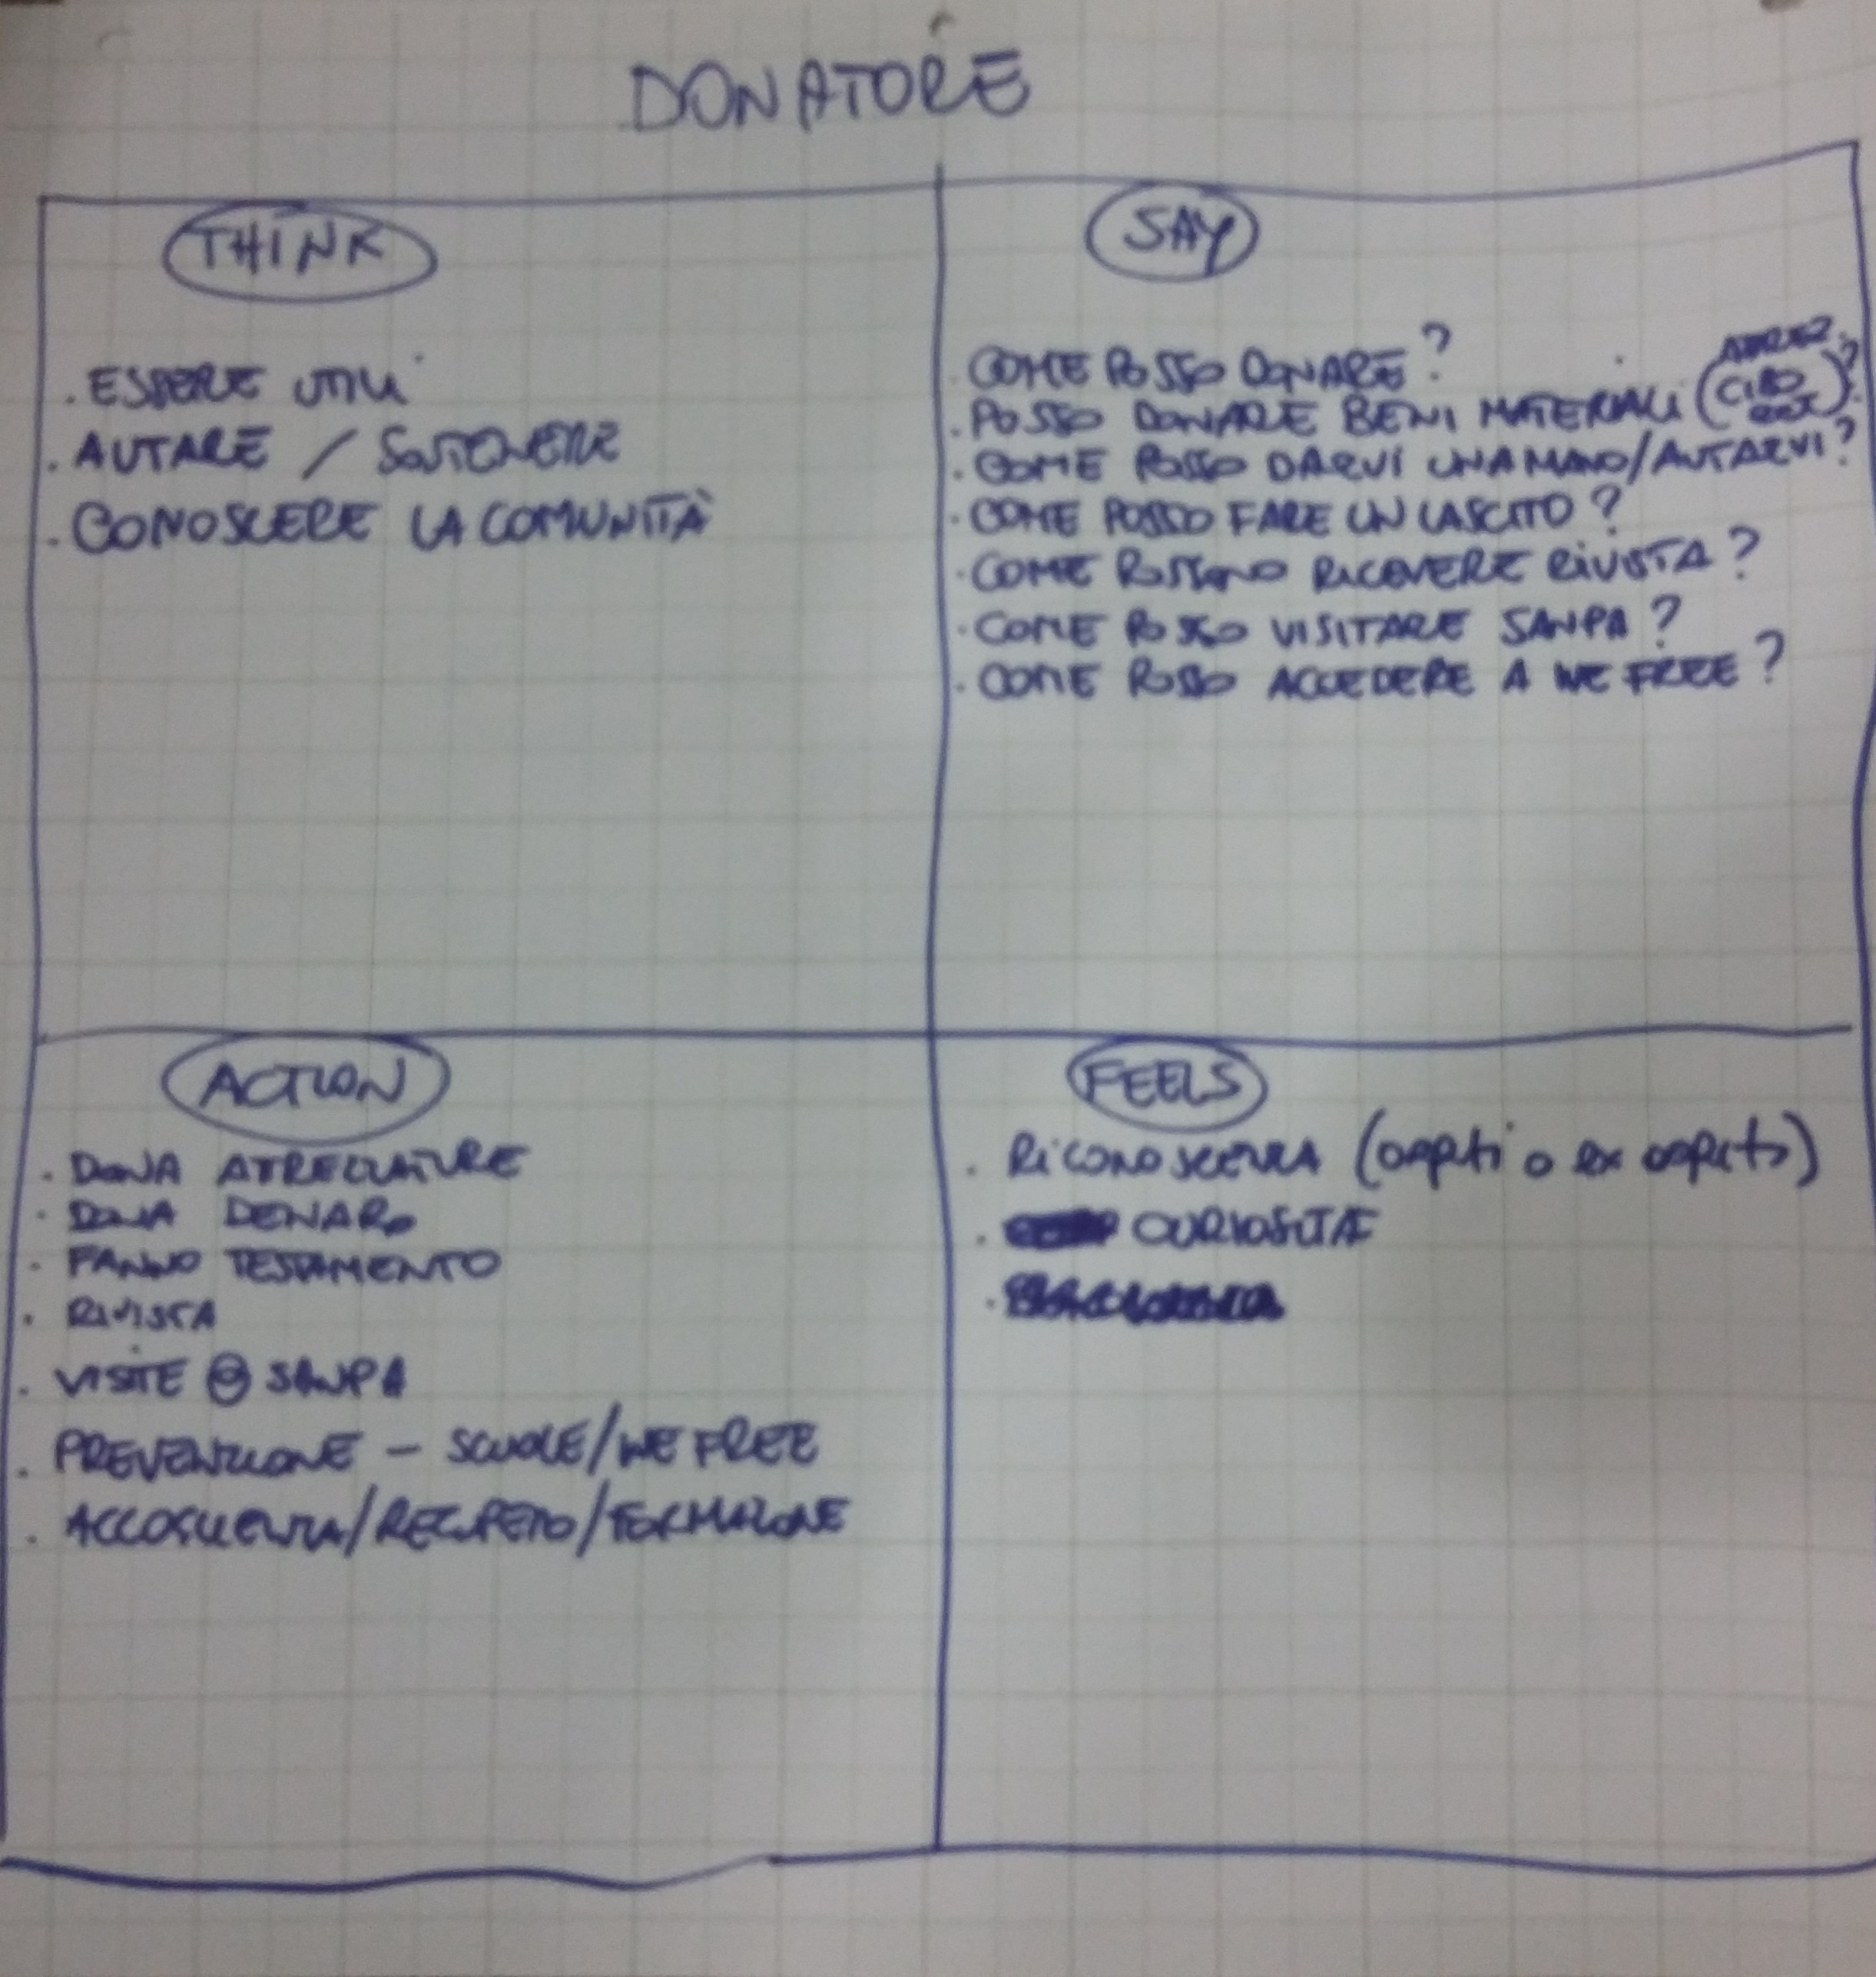 DONATORE
THINK
. ESSERE UTILI
. AIUTARE / SOSTENERE
. CONOSCERE LA COMUNITÀ
SAY
. COME POSSO DONARE?
. POSSO DONARE BENI MATERIALI (ATTREZ. CIBO )?
. COME POSSO DARVI UNA MANO/AIUTARVI?
. COME POSSO FARE UN LASCITO?
. COME POSSONO RICEVERE RIVISTA?
. COME POSSO VISITARE SANPA?
. COME POSSO ACCEDERE A WE FREE?
ACTION
. DONA ATTREZZATURE
. DONA DENARO
. FANNO TESTAMENTO
. RIVISTA
. VISITE @ SANPA
. PREVENZIONE – SCUOLE/WE FREE
. ACCOGLIENZA/RECUPERO/FORMAZIONE
FEELS
. RICONOSCENZA (ospiti o ex ospiti)
. CURIOSITÀ